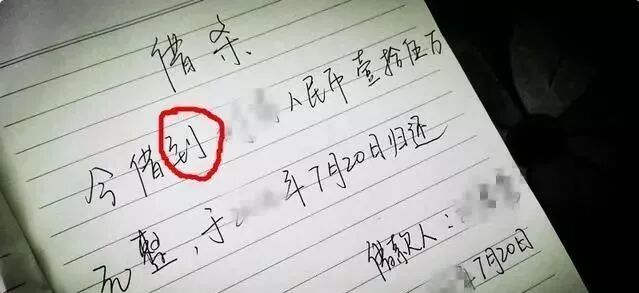 借条
今借到 人民币壹拾伍万
元整,于 年7月20日归还
借款人:
年7月20日